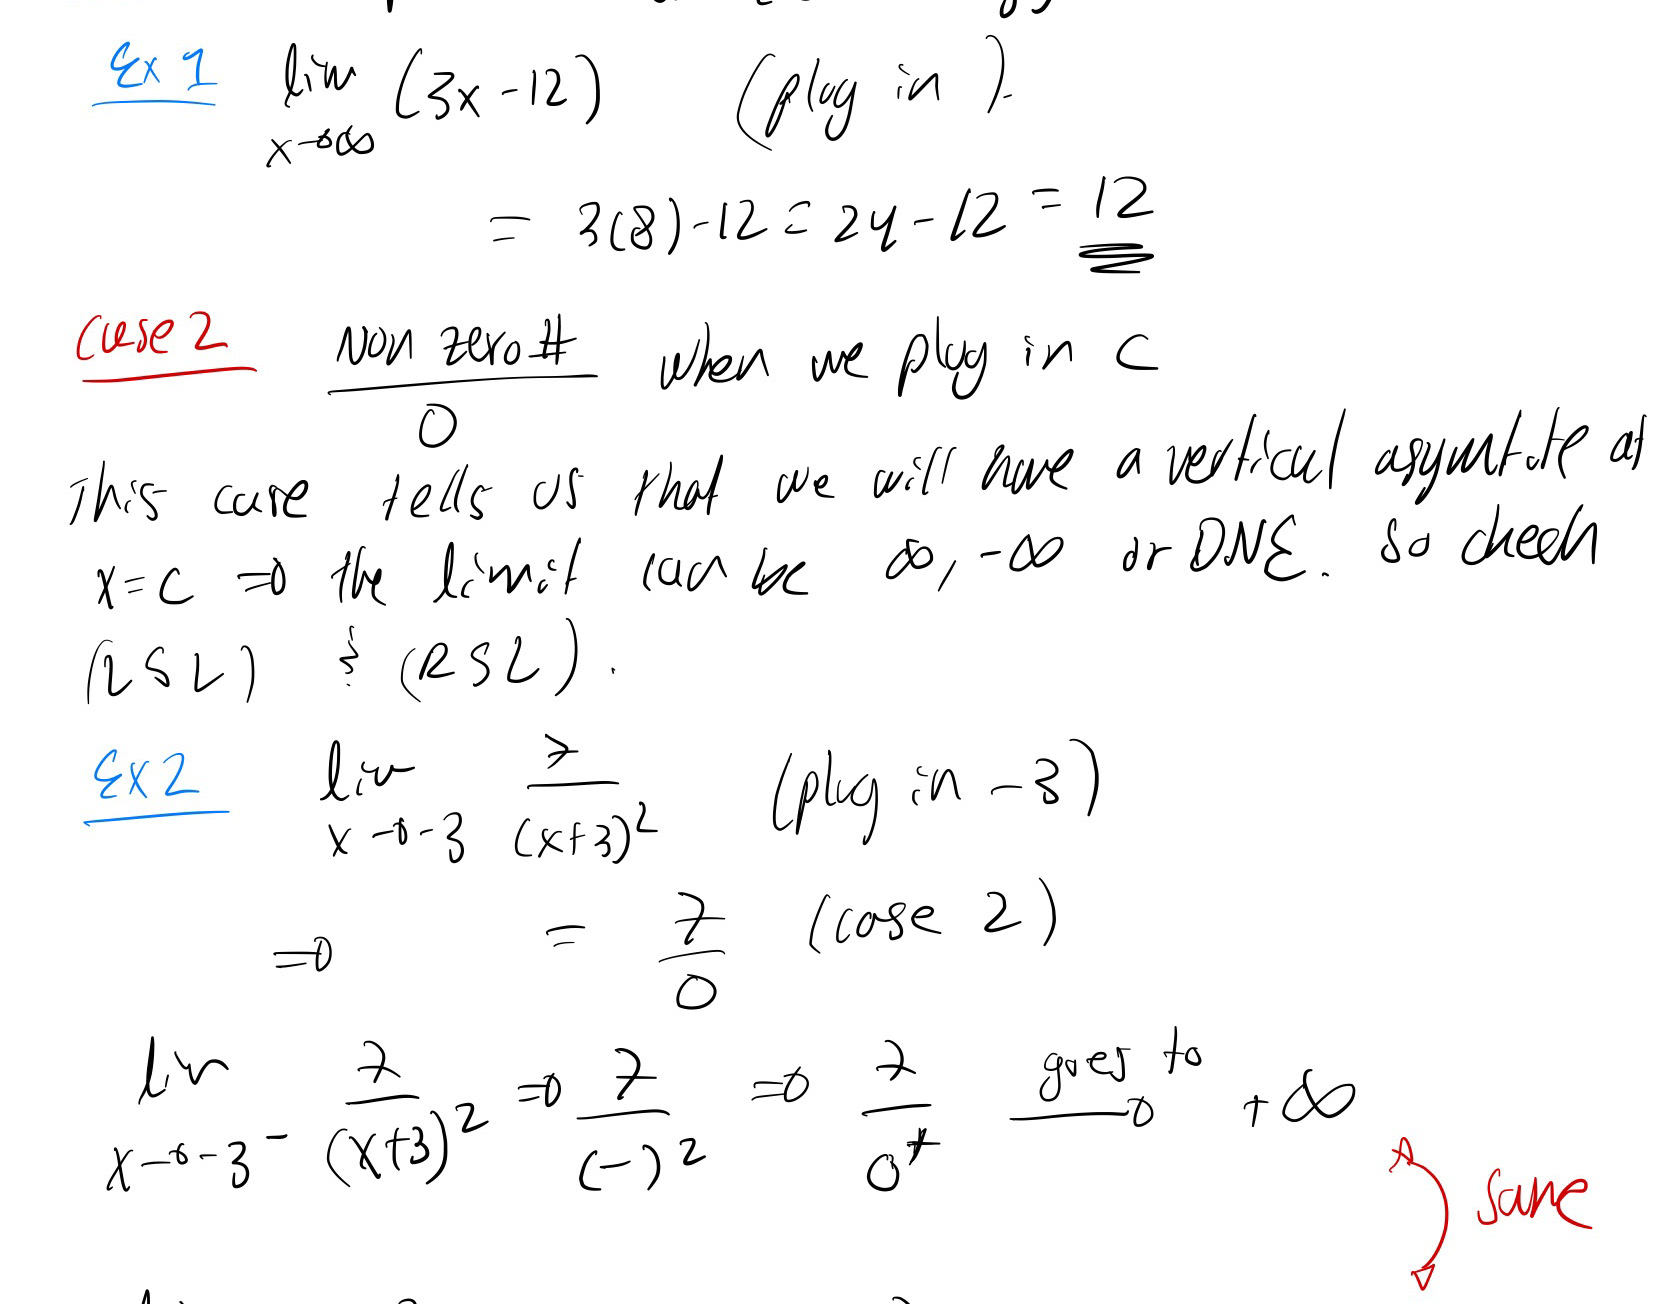 Ex 1 lim (3x-12) (plug in ).
x→∞
= 3(8)-12 = 24-12 = 12
Case 2 Non zero # when we plug in C
0
This case tells us that we will have a vertical asymtote at
x=c ⇒ the limit can be ∞, -∞ or DNE. So check
(LSL) & (RSL).
Ex 2 lim 7 (plug in -3)
x→-3 (x+3)²
⇒ = 7 (case 2)
0
lim 7 ⇒ 7 ⇒ 7 goes to + ∞
x→-3⁻ (x+3)² (-)² 0⁺
same